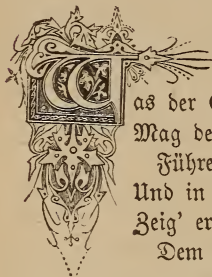 Was der
Mag de
Führe
Und in
Zeig' er
Dem